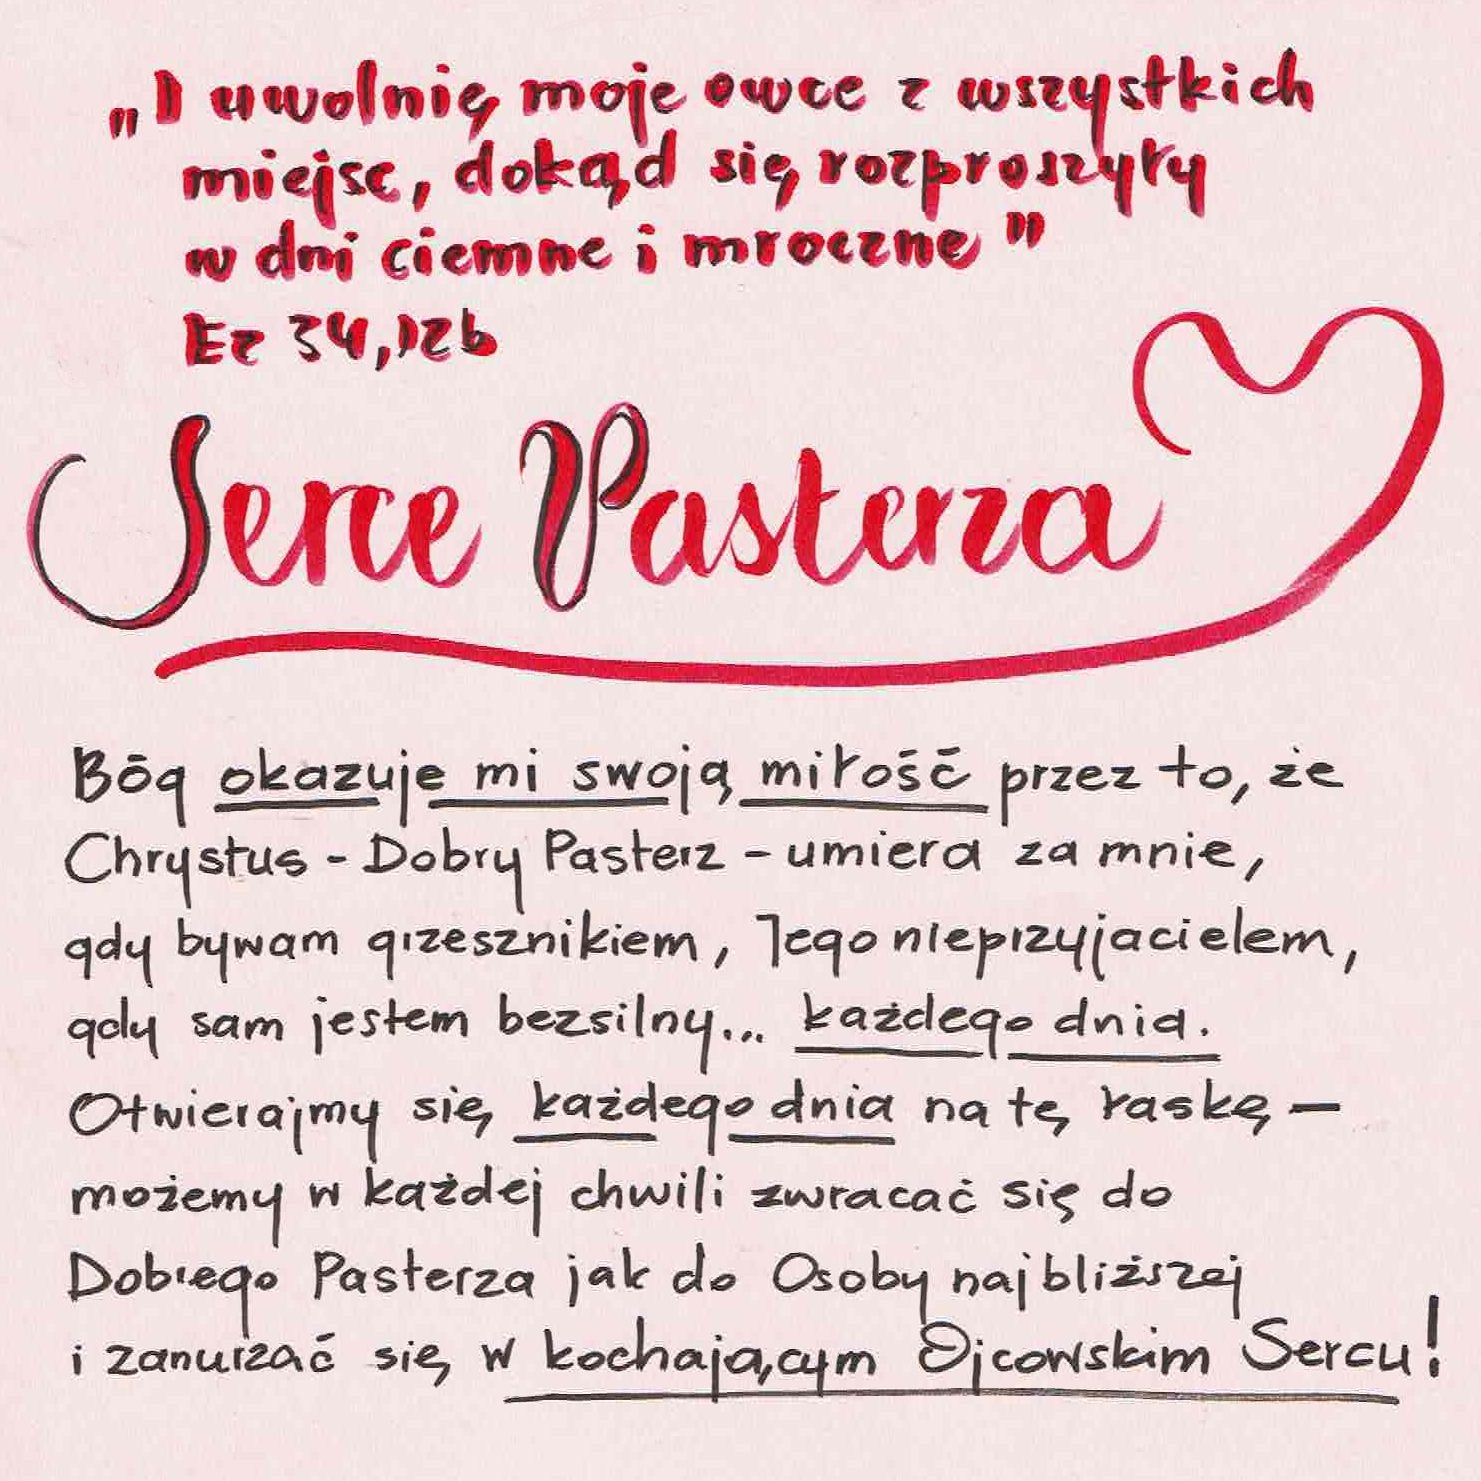 „I uwolnię moje owce z wszystkich
miejsc, dokąd się rozproszyły
w dni ciemne i mroczne”
Ez 34,12b
Serce Pasterza
Bóg okazuje mi swoją miłość przez to, że
Chrystus - Dobry Pasterz - umiera za mnie,
gdy bywam grzesznikiem, Jego nieprzyjacielem,
gdy sam jestem bezsilny... każdego dnia.
Otwierajmy się każdego dnia na tę łaskę –
możemy w każdej chwili zwracać się do
Dobrego Pasterza jak do Osoby najbliższej
i zanurzać się w kochającym Ojcowskim Sercu!